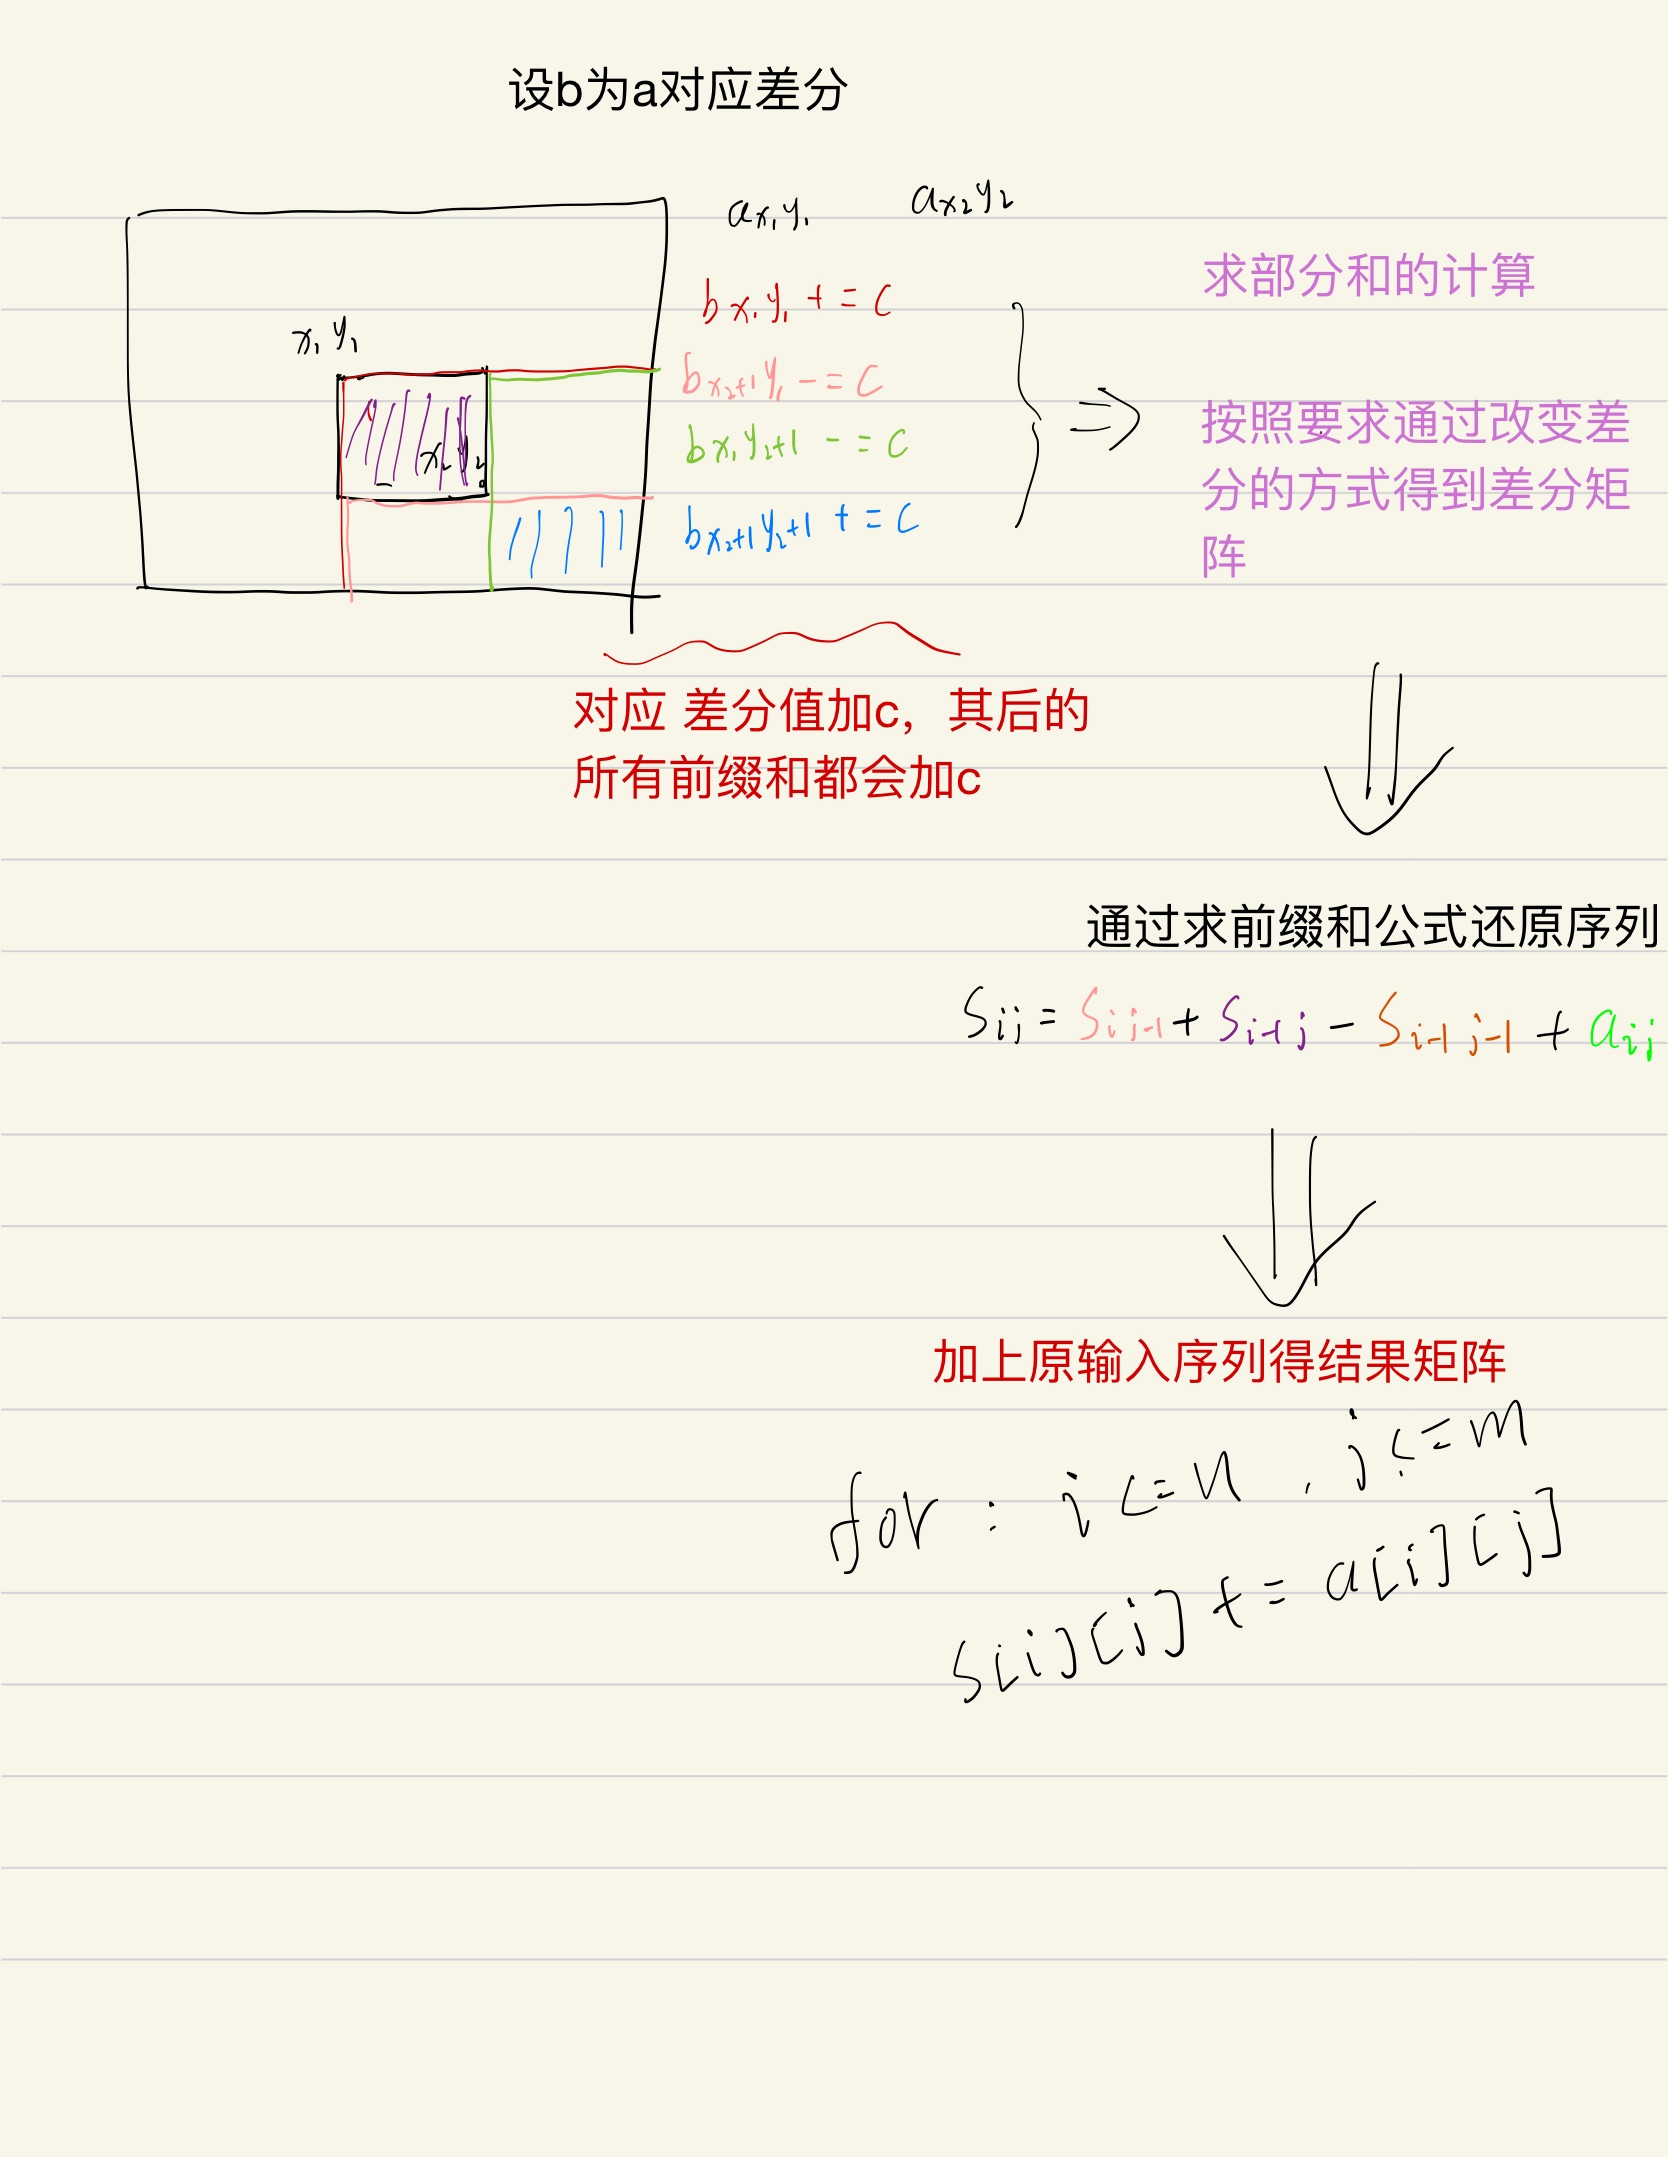 设b为a对应差分
ax₁y₁ ax₂y₂
x₁y₁
x₂y₂
bx₁y₁ += c
bx₂+1y₁ -= c
bx₁y₂+1 -= c
bx₂+1y₂+1 += c
求部分和的计算
按照要求通过改变差
分的方式得到差分矩
阵
对应 差分值加c，其后的
所有前缀和都会加c
通过求前缀和公式还原序列
Sij = Sij-1 + Si-1j - Si-1j-1 + aij
加上原输入序列得结果矩阵
for : i<=n , j<=m
S[i][j] += a[i][j]